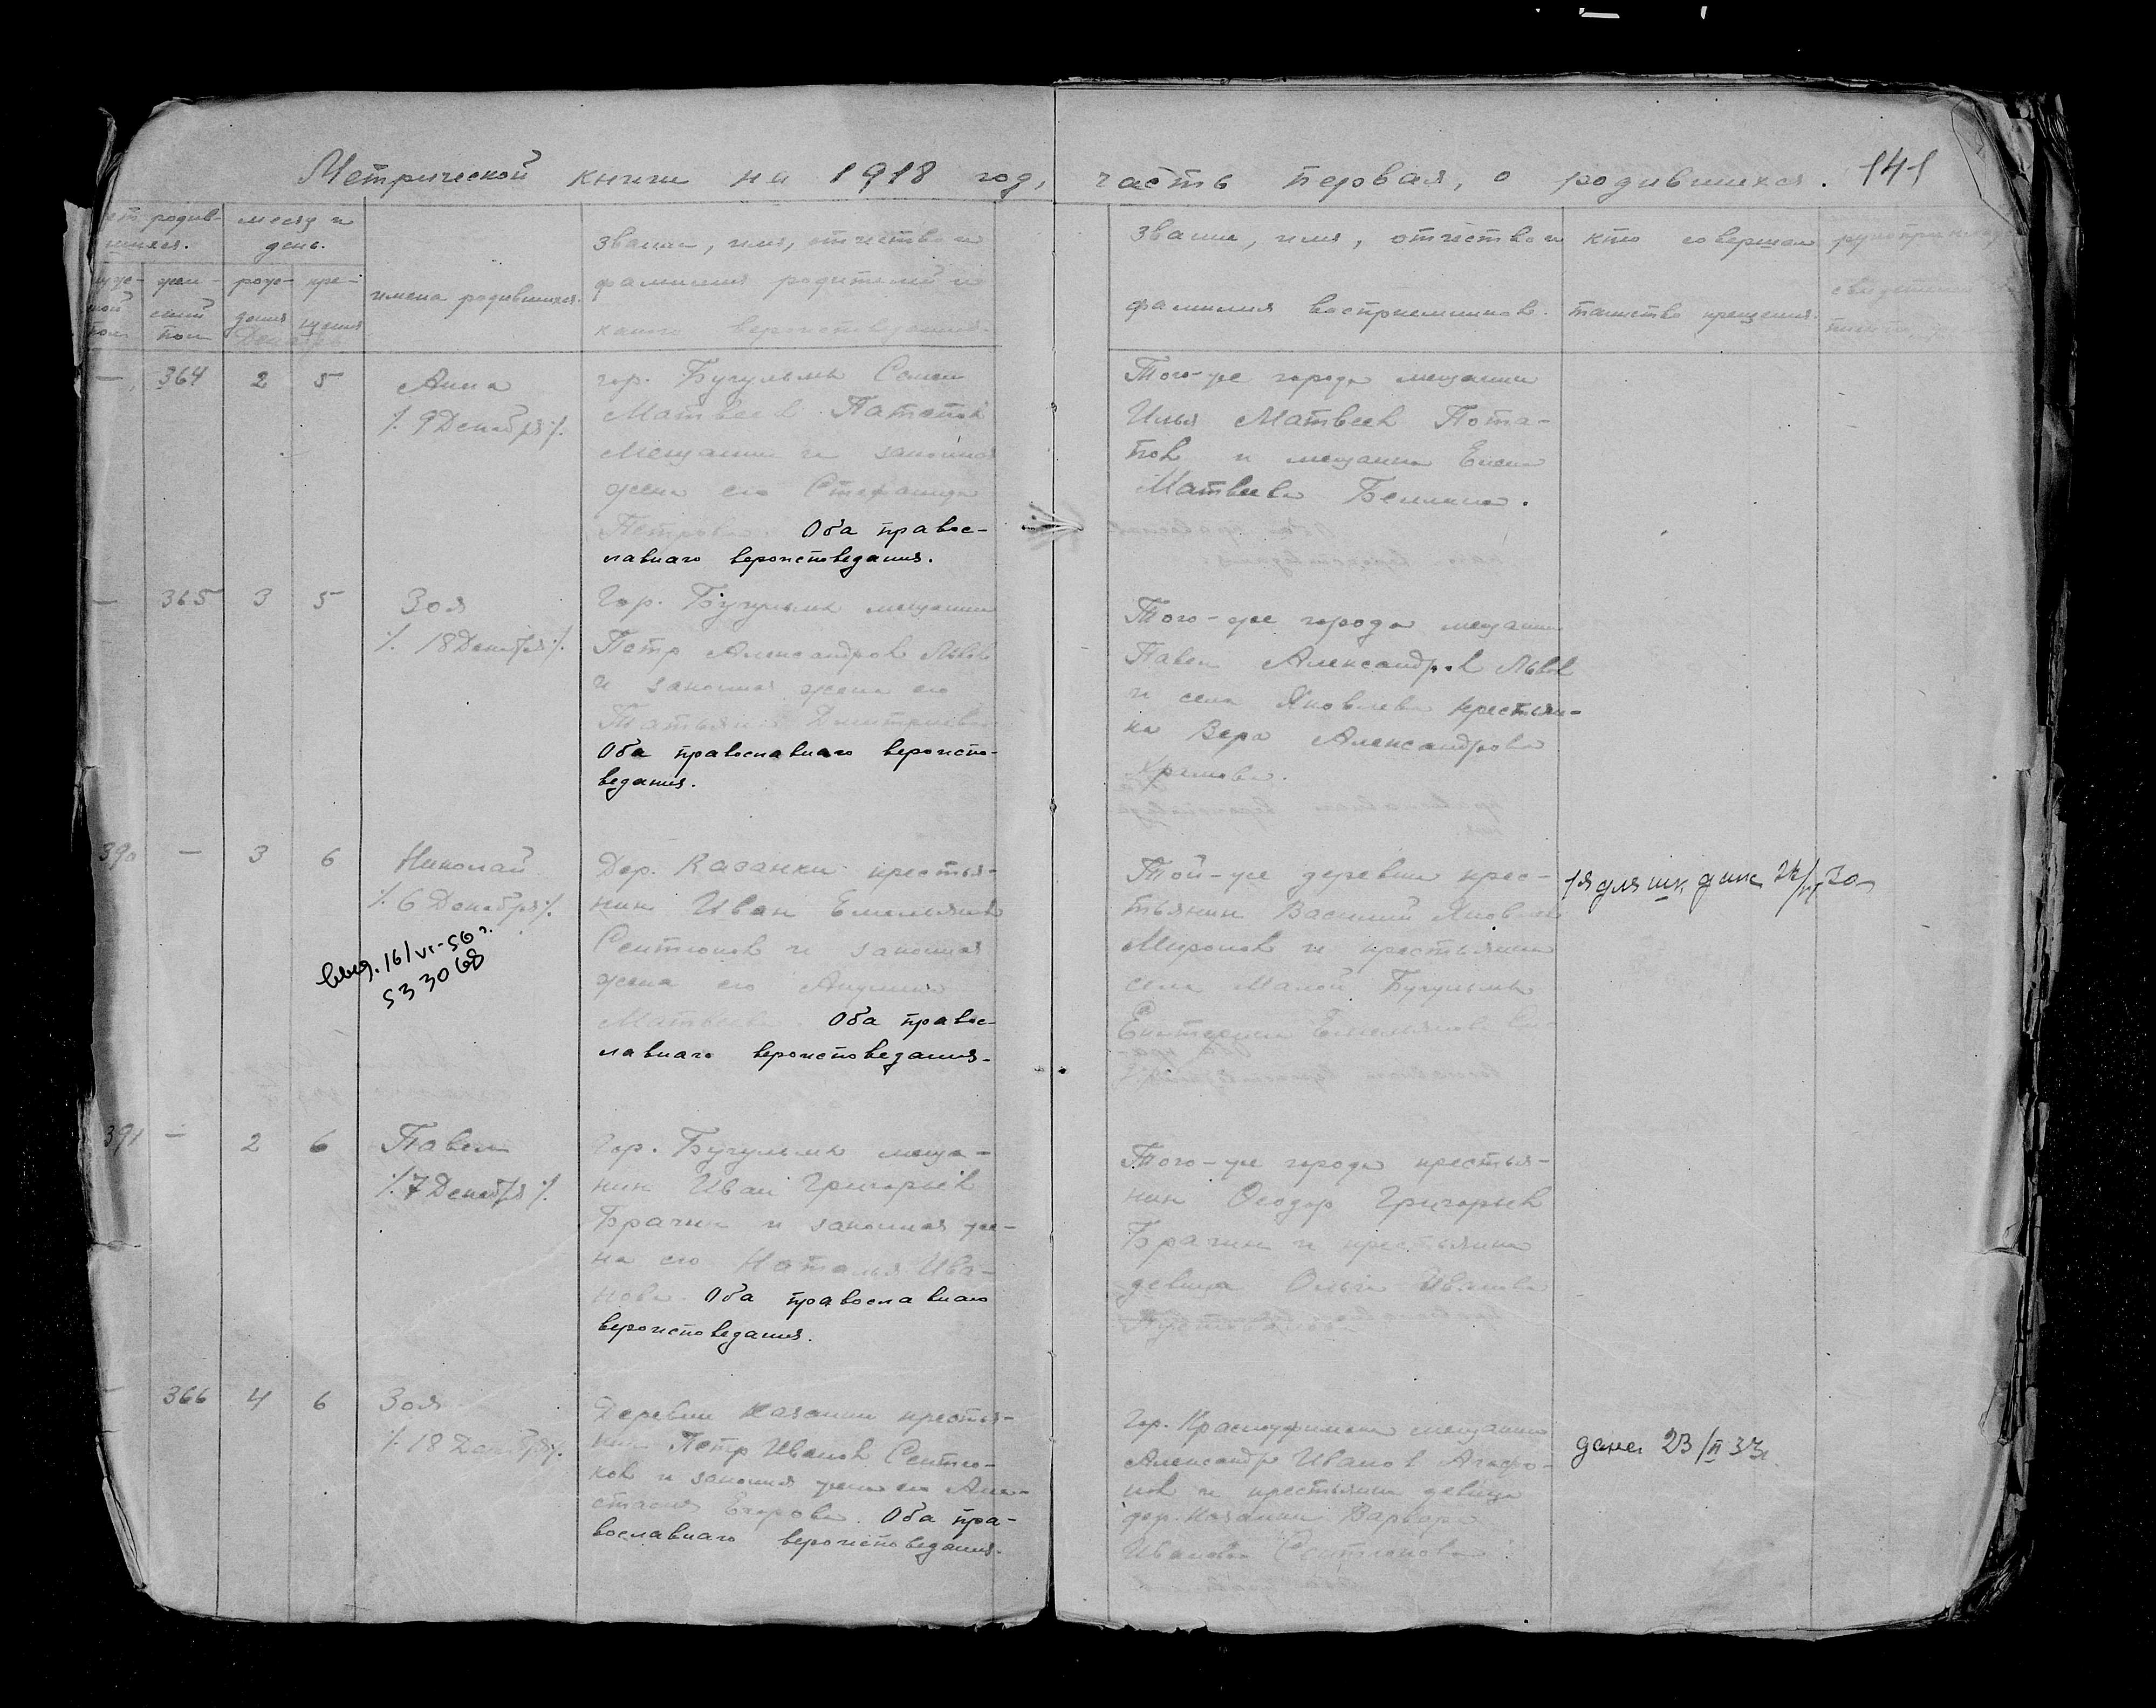 Метрической книги на 1918 год, часть первая, о родившихся. 141
родив- месяц и
шихся. день.
звание, имя, отчество и
фамилия родителей и
какого вероисповедания.
имена родившихся.
женский пол
рождения
крещения
Декабрь
звание, имя, отчество и
фамилия восприемников.
кто совершал
таинство крещения.
— 364 2 5 Анна
·/. 9 Декабря ·/.
гор. Бугульмы Семен
Матвеев Потапов
мещанин и законная
жена его Стефанида
Петрова. Оба правос-
лавнаго вероисповедания.
Того-же города мещанин
Илья Матвеев Пота-
пов и мещанка Елена
Матвеева
— 365 3 5 Зоя
·/. 18 Декабря ·/.
Гор. Бугульмы мещанин
Петр Александров Львов
и законная жена его
Татьяна Дмитриева
Оба православнаго вероиспо-
ведания.
Того-же города мещанин
Павел Александров Львов
и села Яковлева крестьян-
ка Вера Александрова
390 — 3 6 Николай
·/. 6 Декабря ·/.
выд. 16/VI-56 г.
533068
Дер. Казанки крестья-
нин Иван Емельянов
Сентюков и законная
жена его Акулина
Матвеева. Оба правос-
лавнаго вероисповедания.
Той-же деревни крес-
тьянин Василий Яковлев
Миронов и крестьянка
села Малой Бугульмы
Екатерина Емельянова
391 — 2 6 Павел
·/. 7 Декабря ·/.
Гор. Бугульмы меща-
нин Иван Григорьев
Брагин и законная же-
на его Наталья Ива-
нова. Оба православнаго
вероисповедания.
Того-же города крестья-
нин Феодор Григорьев
Брагин и крестьянка
девица Ольга Иванова
— 366 4 6 Зоя
·/. 18 Декабря ·/.
Деревни Казанки крестья-
нин Петр Иванов Сентю-
ков и законная жена его Ана-
стасия Егорова. Оба пра-
вославнаго вероисповедания.
Гор. Красноуфимска мещанин
Александр Иванов Агафо-
нов и крестьянка девица
дер. Казанки Варвара
Иванова Сентюкова.
дана 23/II 33г.